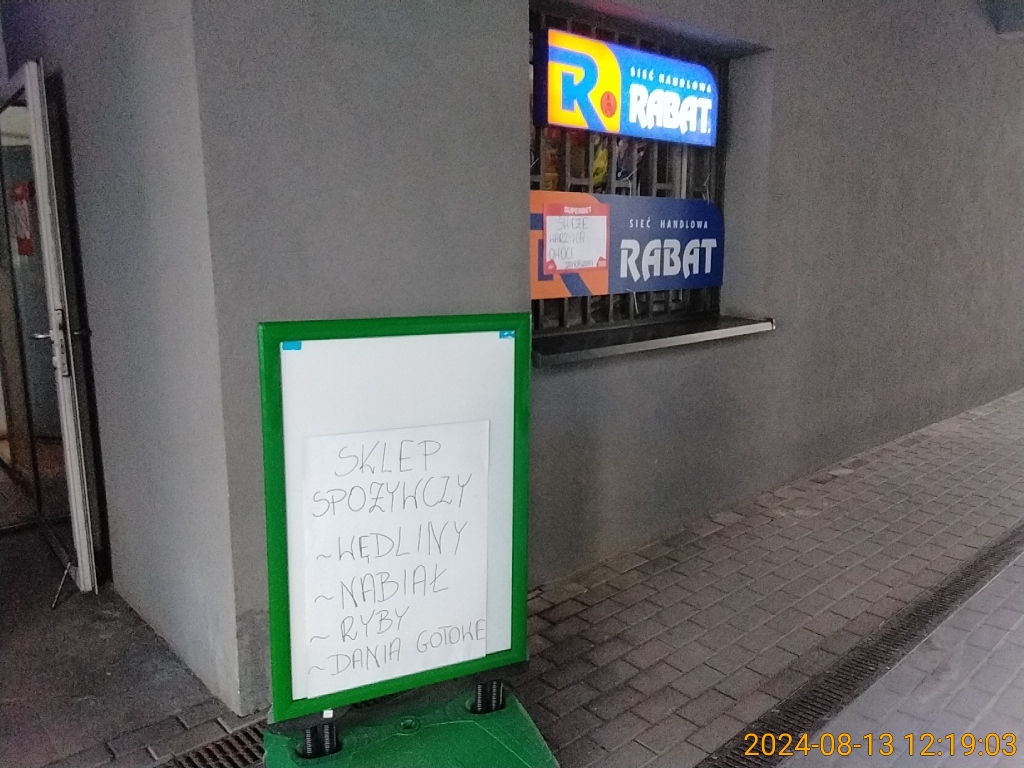 SIEĆ HANDLOWA
RABAT
SUPERBET
ŚWIEŻE
WARZYWA
OWOCI
SIEĆ HANDLOWA
RABAT
SKLEP
SPOŻYWCZY
~WĘDLINY
~NABIAŁ
~ RYBY
~DANIA GOTOWE
2024-08-13 12:19:03